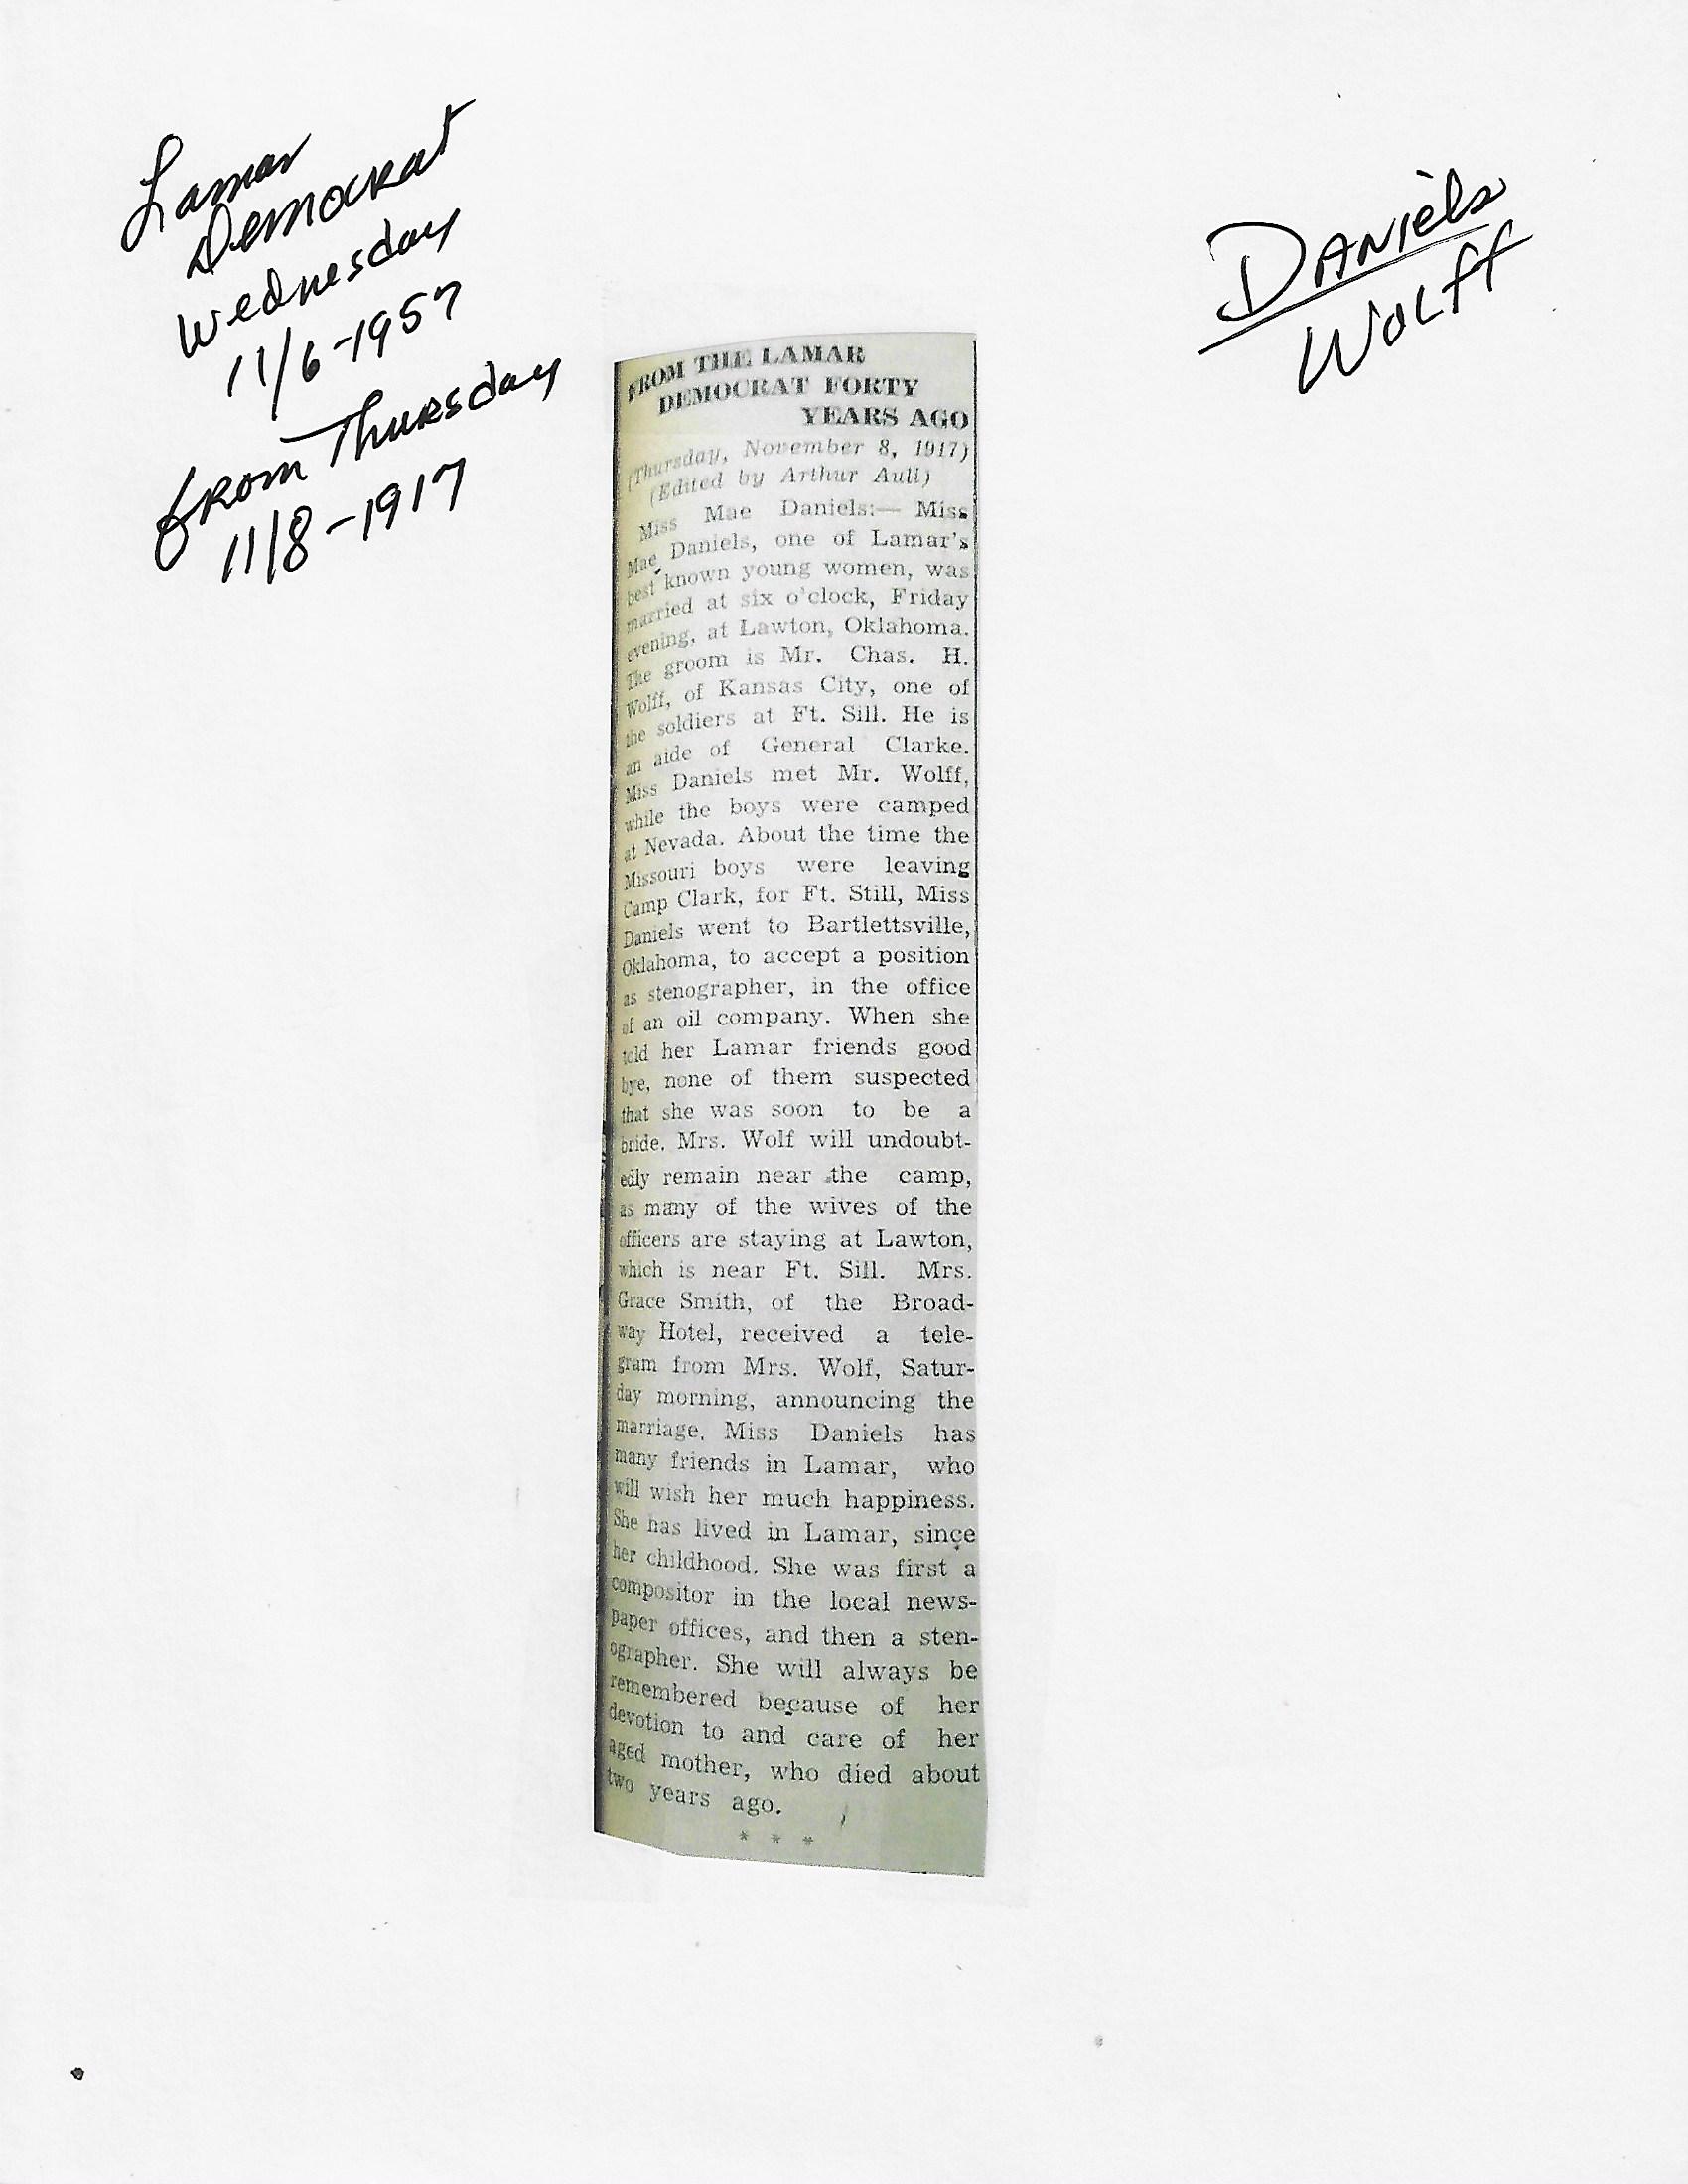 Lamar
Democrat
Wednesday
11/6-1957
from Thursday
11/8-1917
Daniels
Wolff
FROM THE LAMAR
DEMOCRAT FORTY
YEARS AGO
(Thursday, November 8, 1917)
(Edited by Arthur Aull)
Miss Mae Daniels:— Miss
Mae Daniels, one of Lamar's
best known young women, was
married at six o'clock, Friday
evening, at Lawton, Oklahoma.
The groom is Mr. Chas. H.
Wolff, of Kansas City, one of
the soldiers at Ft. Sill. He is
an aide of General Clarke.
Miss Daniels met Mr. Wolff,
while the boys were camped
at Nevada. About the time the
Missouri boys were leaving
Camp Clark, for Ft. Still, Miss
Daniels went to Bartlettsville,
Oklahoma, to accept a position
as stenographer, in the office
of an oil company. When she
told her Lamar friends good
bye, none of them suspected
that she was soon to be a
bride. Mrs. Wolf will undoubt-
edly remain near the camp,
as many of the wives of the
officers are staying at Lawton,
which is near Ft. Sill. Mrs.
Grace Smith, of the Broad-
way Hotel, received a tele-
gram from Mrs. Wolf, Satur-
day morning, announcing the
marriage. Miss Daniels has
many friends in Lamar, who
will wish her much happiness.
She has lived in Lamar, since
her childhood. She was first a
compositor in the local news-
paper offices, and then a sten-
ographer. She will always be
remembered because of her
devotion to and care of her
aged mother, who died about
two years ago.
* * *